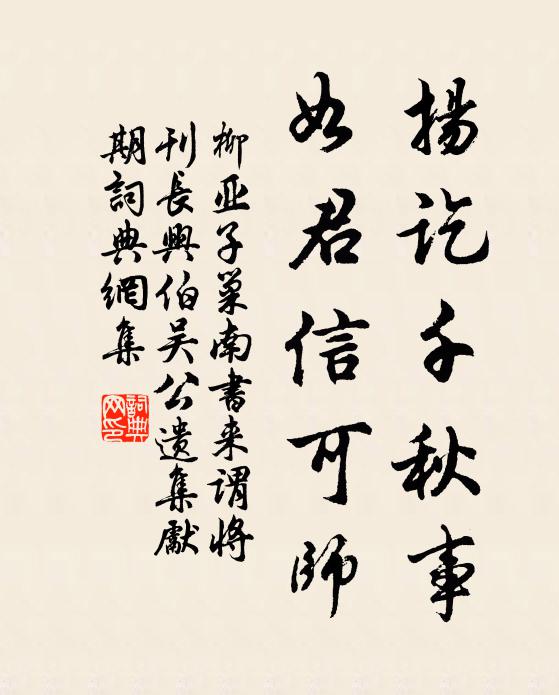 揚訖千秋事
如君信可師
柳亚子巢南書来謂将
刊長興伯吴公遗集獻
期詞典網集
詞典网印